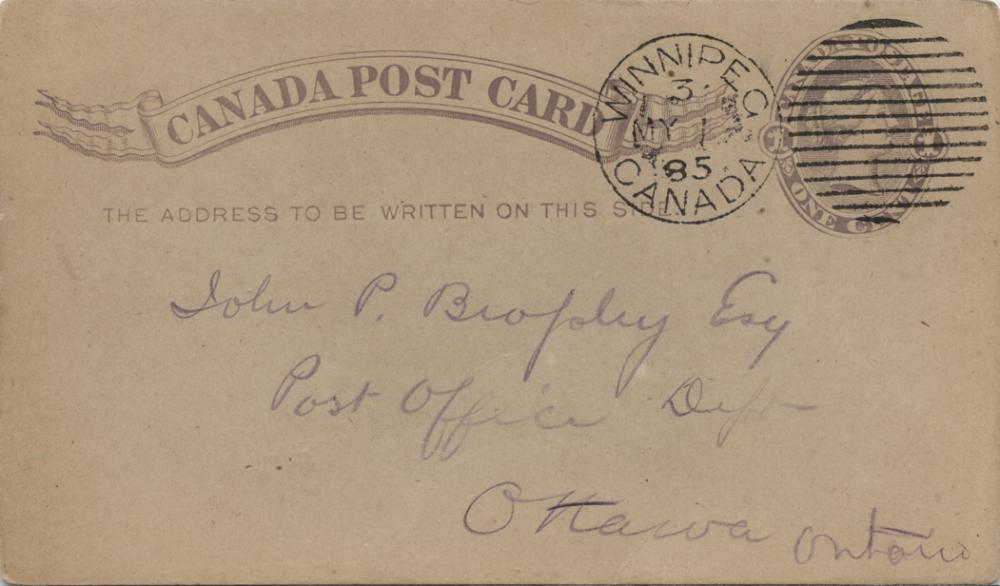 CANADA POST CARD
WINNIPEG
3
MY 1
85
CANADA
ONE CENT
THE ADDRESS TO BE WRITTEN ON THIS SIDE.
John P. Brophy Esq
Post Office Dept
Ottawa Ontario